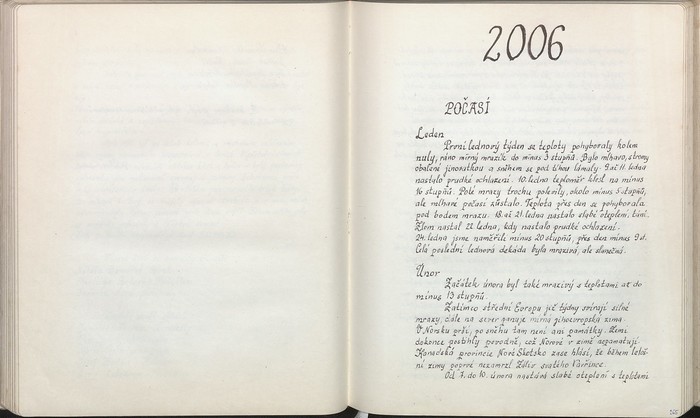 2006
POČASÍ
Leden
První lednový týden se teploty pohybovaly kolem
nuly, ráno mírný mrazík do minus 3 stupňů. Bylo mlhavo, stromy
obalené jinovatkou a sněhem se pod tíhou lámaly. 9. až 11. ledna
nastalo prudké ochlazení. 10. ledna teploměr klesl na minus
16 stupňů. Poté mrazy trochu polevily, okolo minus 5 stupňů,
ale mlhavé počasí zůstalo. Teplota přes den se pohybovala
pod bodem mrazu. 18. až 21. ledna nastalo slabé oteplení, tání.
Zlom nastal 22. ledna, kdy nastalo prudké ochlazení.
24. ledna jsme naměřili minus 20 stupňů, přes den minus 9 st.
Celá poslední lednová dekáda byla mrazivá, ale slunečná.
Únor
Začátek února byl také mrazivý s teplotami až do
minus 13 stupňů.
Zatímco střední Evropu již týdny svírají silné
mrazy, dále na sever panuje mírná jihoevropská zima.
V Norsku prší, po sněhu tam není ani památky. Zemi
dokonce postihly povodně, což Norové v zimě nepamatují.
Kanadská provincie Nové Skotsko zase hlásí, že během letoš-
ní zimy poprvé nezamrzl Záliv svatého Vavřince.
Od 7. do 10. února nastává slabé oteplení s teplotami